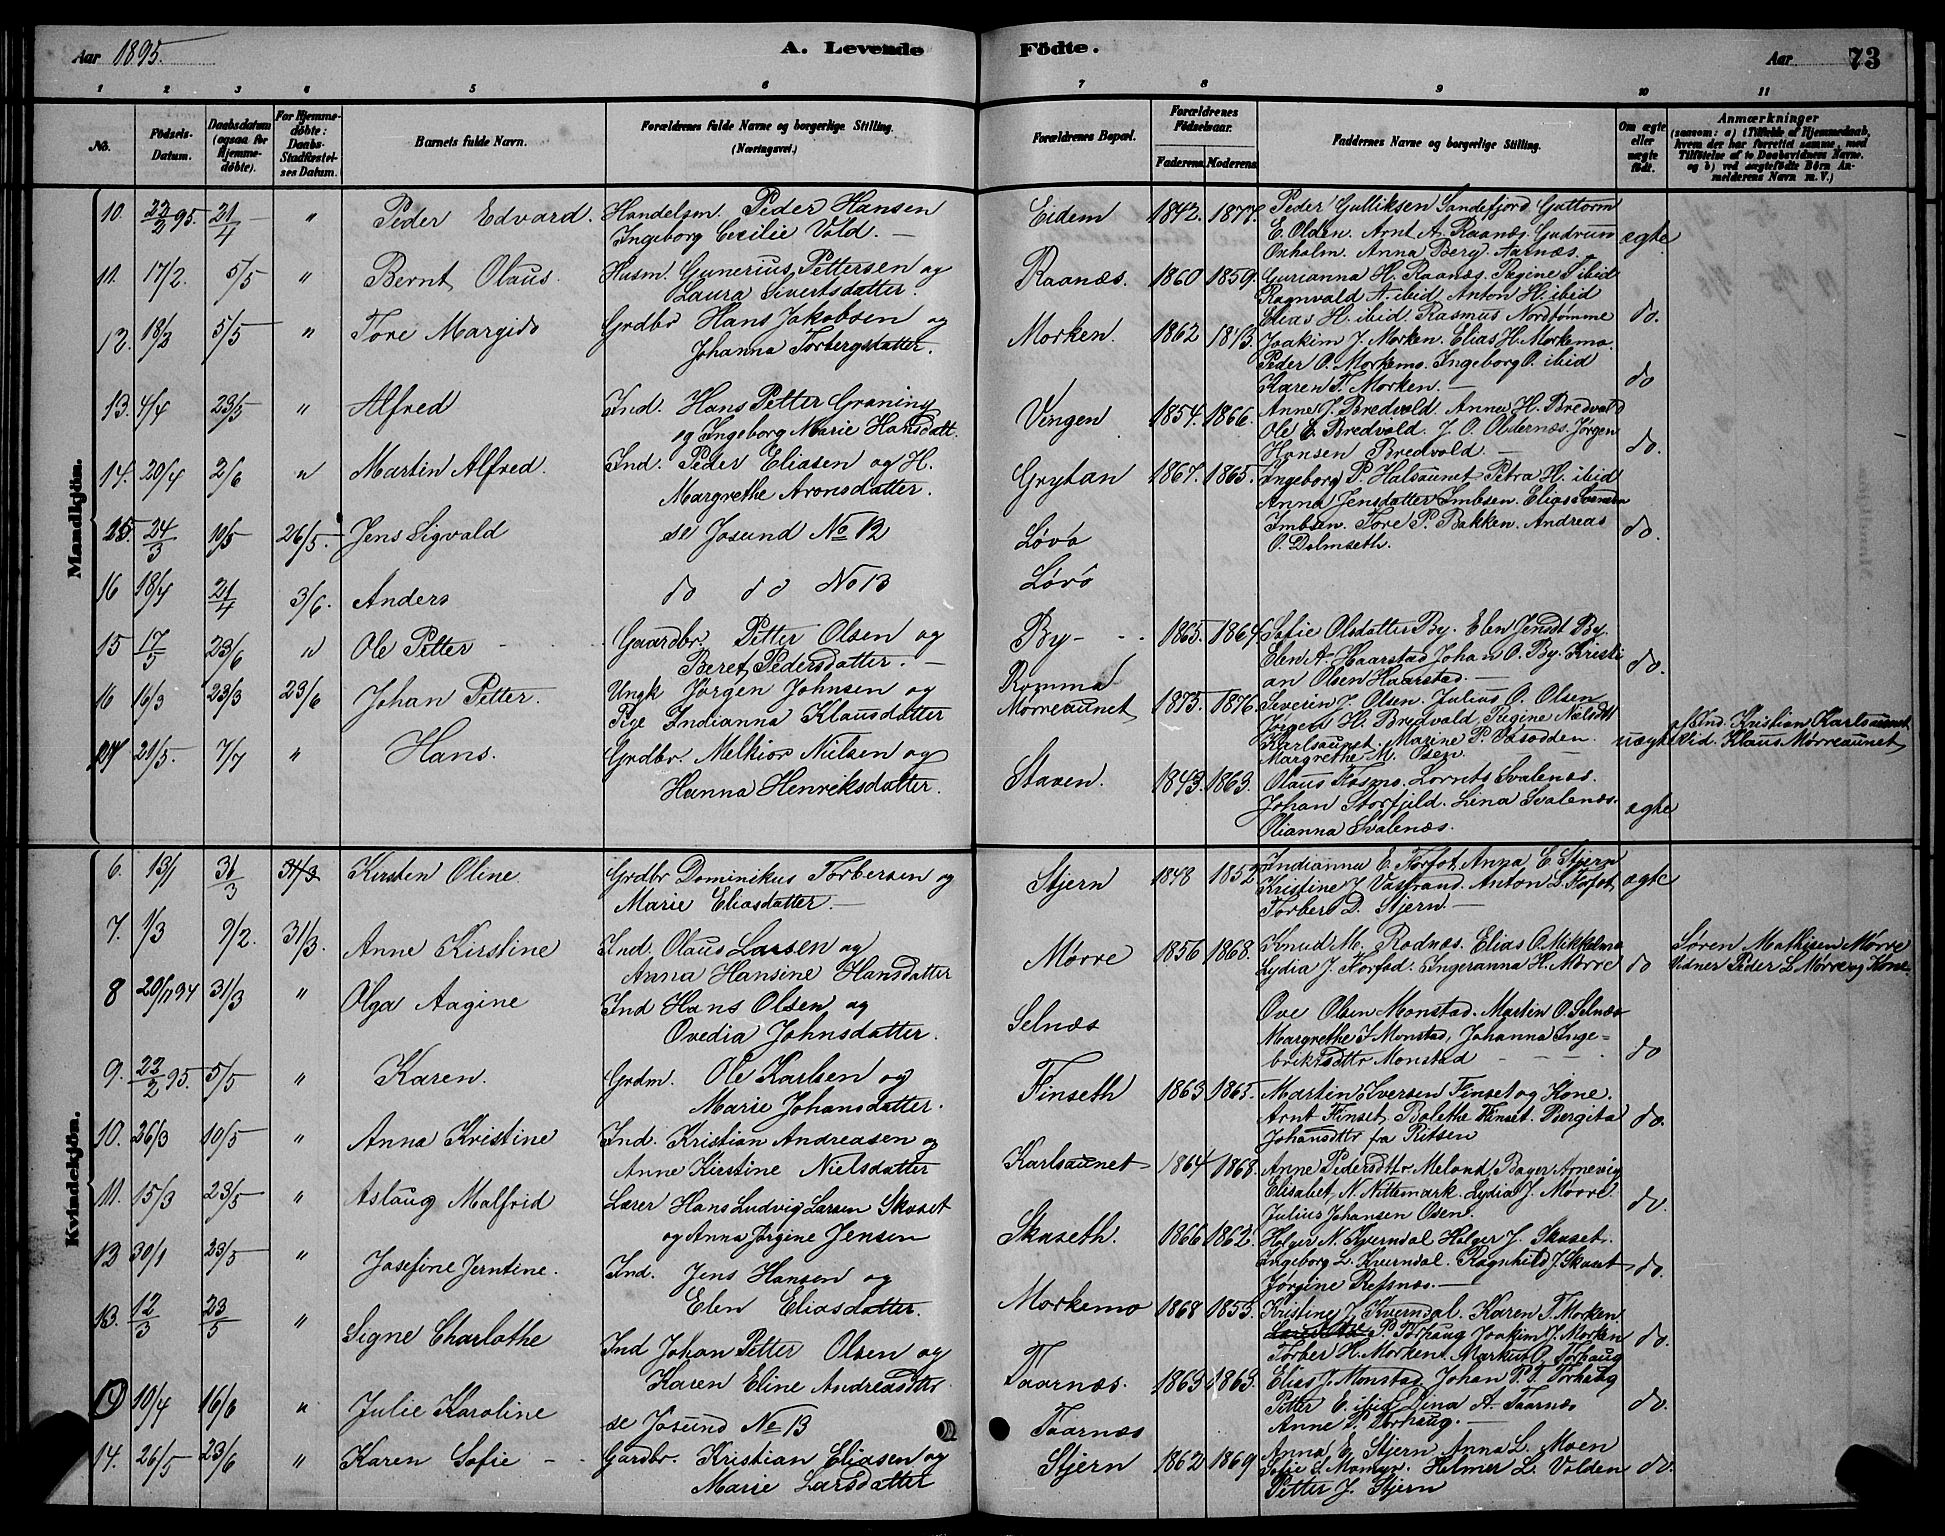 Aar 1895.
A. Levende Födte.
Aar
73
1 2 3 4 5 6 7 8 9 10 11
No.
Födsels-Datum.
Daabsdatum (ogsaa for Hjemme-döbte).
For Hjemme-döbte: Daabs-Stadfæstel-ses Datum.
Barnets fulde Navn.
Forældrenes fulde Navne og borgerlige Stilling. (Næringsvei.)
Forældrenes Bopæl.
Forældrenes Födselsaar.
Faderens. Moderens.
Faddernes Navne og borgerlige Stilling.
Om ægte eller uægte födt.
Anmærkninger (saasom: a) i Tilfælde af Hjemmedaab, hvem der har forrettet samme, med Tilföielse af to Daabsvidners Navne, og b) ved uægtefödte Börn An-melderens Navn m. V.)
Mandkjön.
10. 22/2 95. 21/4 " Peder Edvard. Handelsm. Peder Hansen
Ingeborg Cecilie Vold. Eidem 1842. 1877. Peder Gulliksen Sandefjord Guttorm
E. Olden. Arnt A. Raanæs. Gudrun
Oxholm. Anna Berg. Aarnæs. ægte
11. 17/2. 5/5 " Bernt Olaus. Husm. Gunerius Pettersen og
Laura Sivertsdatter. Raanæs. 1860 1859. Gurianna H. Raanæs. Regine T. ibid
Ragnvald A. ibid Anton H. ibid
Elias H. ibid. Rasmus Nordtømme do.
12. 18/3 5/5 " Tore Margido Grdbr Hans Jakobsen og
Johanna Torbergsdatter. Morken. 1862 1873. Joakim J. Morken. Elias H. Morkemo.
Peder O. Morkemo. Ingeborg O. ibid
Karen T. Morken. do
13. 4/4 23/5 " Alfred Ind. Hans Petter Graning
og Ingeborg Marie Hansdatt. Vingen 1854. 1866. Anne J. Bredvold. Anna H. Bredvold
Ole E. Bredvold. J. O. Oldernæs. Jørgen
Hansen Bredvold. do.
14. 20/4 2/6 " Martin Alfred. Ind. Peder Eliasen og H.
Margrethe Aronsdatter. Grytan 1867. 1865. Ingeborg P. Halsaunet Petra H. ibid
Anna Jensdatter Imbsen. Elias Svendsen
Imbsen. Tore P. Bakken. Andreas
O. Dolmseth. do.
15. 24/3 10/5 26/5. Jens Sigvald se Jøsund No 12 Løvø
16 18/4 21/4 3/6. Anders do do No 13 Løvø
15 17/5 23/6 " Ole Petter Gaardbr. Petter Olsen og
Beret Pedersdatter. By 1865. 1864. Sofie Olsdatter By. Elen Jensdt By.
Elen A. Haarstad Johan O. By. Kristi
an Olsen Haarstad. do.
16 16/3 23/3 23/6 Johan Petter. Ungk Jørgen Johnsen og
Pige Indianna Klausdatter Romma
Mørreaunet 1875. 1876. Severin J. Olsen. Julius O. Olsen
Jørgen H. Bredvold, Regine Nielsdtt
Karlsaunet. Marine P. Vasodden.
Margrethe M. Osen. uægte af Ind. Kristian Karlsaunet
Vid. Klaus Mørreaunet
17 21/5. 7/7 " Hans. Grdbr. Melkior Nielsen og
Hanna Henriksdatter. Staven. 1843. 1863. Olaus Fosmo. Lornts Svalenæs.
Johan Storfjeld. Lina Svalenæs.
Olianna Svalenæs. ægte
Kvindekjön.
6. 13/1 31/3 31/3 Kirsten Oline Grdbr Dominikus Torbersen og
Marie Eliasdatter. Stjern 1848 1852 Indianna E. Forfot. Anna E. Stjern
Kristine J. Vasstrand. Anton L. Forfot
Torber D. Stjern. ægte
7. 1/3 9/2. 31/3. Anne Kirstine Ind. Olaus Larsen og
Anna Hansine Hansdatter Mørre 1856 1868. Knud M. Rødnæs. Elias O. Mikkelmo
Lydia J. Forfod. Ingeranna H. Mørre do Søren Mathisen Mørre
Vidner Peder L. Mørre og Kone.
8 20/12 94 31/3 " Olga Aagine Ind Hans Olsen og
Ovedia Johnsdatter. Selnæs Ove Olsen Monstad. Martin O. Selnæs
Margrethe I. Monstad, Johanna Inge=
brikts​dttr Monstad do
9. 22/2 95. 5/5 " Karen. Grdm. Ole Karlsen og
Marie Johansdatter. Finseth 1863 1865. Martin Iversen Finset og Kone.
Arnt Finset, Bolethe Finset. Bergita
Johansdttr fra Ritsen do.
10. 26/3 10/5 " Anna Kristine Ind. Kristian Andreasen og
Anne Kirstine Nielsdatter Karlsaunet 1864 1868. Anne Pedersdttr Meland, Bager Arnevig
Elisabet N. Nittemark. Lydia J. Mørre.
Julius Johansen Osen. do.
11. 15/3 23/5 " Aslaug Malfrid Lærer Hans Ludvig Larsen Skaset
og Anna Jørgine Jensen Skaseth. 1866 1862. Helger N. Kverndal Holger J. Skaset.
Ingeborg L. Kverndal. Ragnhild J. Skaset
Jørgine Refsnæs. do.
12 30/1 23/5 " Josefine Jerntine. Ind. Jens Hansen og
Elen Eliasdatter. Morkemo 1868 1855. Kristine J. Kverndal. Karen T. Morken.
P. Torhaug Joakim J. Morken
Torber H. Morken. Markus P. Torhaug do.
13. 12/3 23/5 " Signe Charlothe Ind Johan Petter Olsen og
Karen Eline Andreasdttr Taarnæs. 1863 1863. Elias J. Monstad Johan P. I. Torhaug
Petter E. ibid Dina A. Taarnæs
Anne P. Torhaug. do.
10/4 16/6 " Julie Karoline se Jøsund No 13 Taarnæs
14. 26/5 23/6 " Karen Sofie Gardbr. Kristian Eliasen og
Marie Larsdatter Stjern 1862 1869 Anna E. Stjern Anna L. Moen
Sofie S. Momyr. Helmer L. Volden
Petter J. Stjern do.